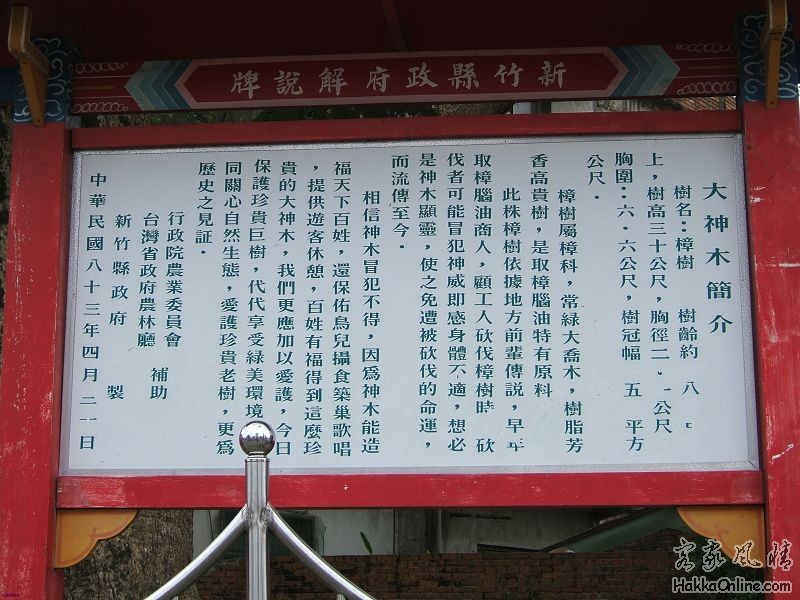 新竹縣政府解說牌
大神木簡介
樹名：樟樹　樹齡約　八
上，樹高三十公尺，胸徑二．一公尺
胸圍：六．六公尺，樹冠幅　五　平方
公尺．
樟樹屬樟科，常綠大喬木，樹脂芳
香高貴樹，是取樟腦油特有原料
此株樟樹依據地方前輩傳說，早年
取樟腦油商人，顧工人砍伐樟樹時　砍
伐者可能冒犯神威即感身體不適，想必
是神木顯靈，使之免遭被砍伐的命運，
而流傳至今．
相信神木冒犯不得，因為神木能造
福天下百姓，還保佑鳥兒攝食築巢歌唱
，提供遊客休憩，百姓有福得到這麼珍
貴的大神木，我們更應加以愛護，今日
保護珍貴巨樹，代代享受綠美環境
同關心自然生態，愛護珍貴老樹，更為
歷史之見証．
行政院農業委員會
台灣省政府農林廳　補助
新竹縣政府　製
中華民國八十三年四月二一日
客家風情
HakkaOnline.com